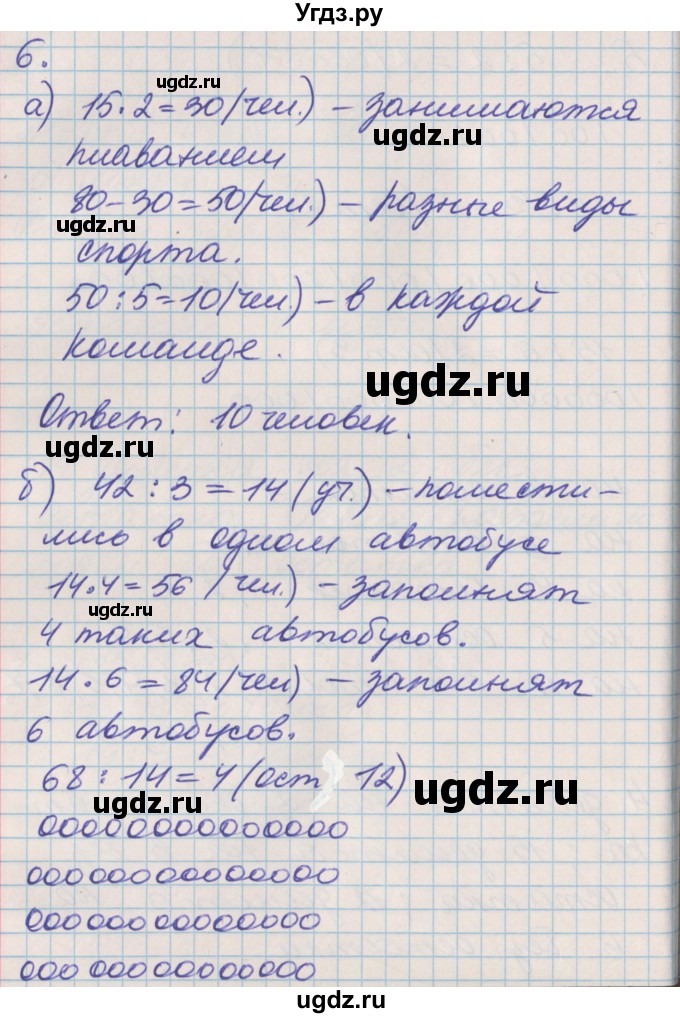 Угдз.ру
6.
ugdz.ru
а) 15·2=30(чел.) – занимаются
ugdz.ru
плаванием
80–30=50(чел.) – разные виды
ugdz.ru
спорта.
50:5=10(чел.) – в каждой
команде.
ugdz.ru
Ответ: 10 человек.
ugdz.ru
б) 42:3=14(уч.) – помести–
лись в одном автобусе
14·4=56 (чел.) – заполнят
ugdz.ru
4 таких автобусов.
14·6=84(чел) – заполнят
6 автобусов.
68:14=4(ост 12)
ugdz.ru
ugdz.ru
00000000000000
00000000000000
00000000000000
00000000000000
ugdz.ru